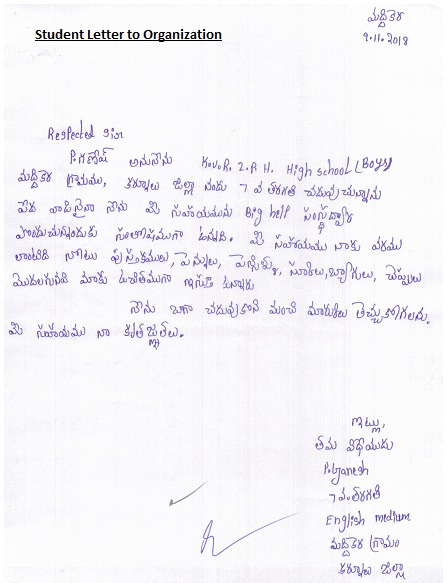 మద్దికెర
9.11.2018
Student Letter to Organization
Respected sir
P.గణేష్ అనునేను K.V.R. Z.P.H. High school (Boys)
మద్దికెర గ్రామము, కర్నూలు జిల్లా నందు 7 వ తరగతి చదువుచున్నాను
పేద వాడినైన నేను మీ సహాయమును Big help సంస్థద్వారా
పొందుచున్నందుకు సంతోషముగా ఉన్నది. మీ సహాయము నాకు వరము
లాంటిది నోటు పుస్తకములు, పెన్నులు, పెన్సిళ్ళు, స్కేలు, బ్యాగులు, చెప్పులు
మొదలగునవి మాకు ఉచితముగా ఇస్తూ ఉన్నారు
నేను బాగా చదువుకొని మంచి మార్కులు తెచ్చుకోగలను.
మీ సహాయము నా కృతజ్ఞతలు.
ఇట్లు,
తమ విధేయుడు
P.Ganesh
7వ తరగతి
English medium
మద్దికెర గ్రామం
కర్నూలు జిల్లా